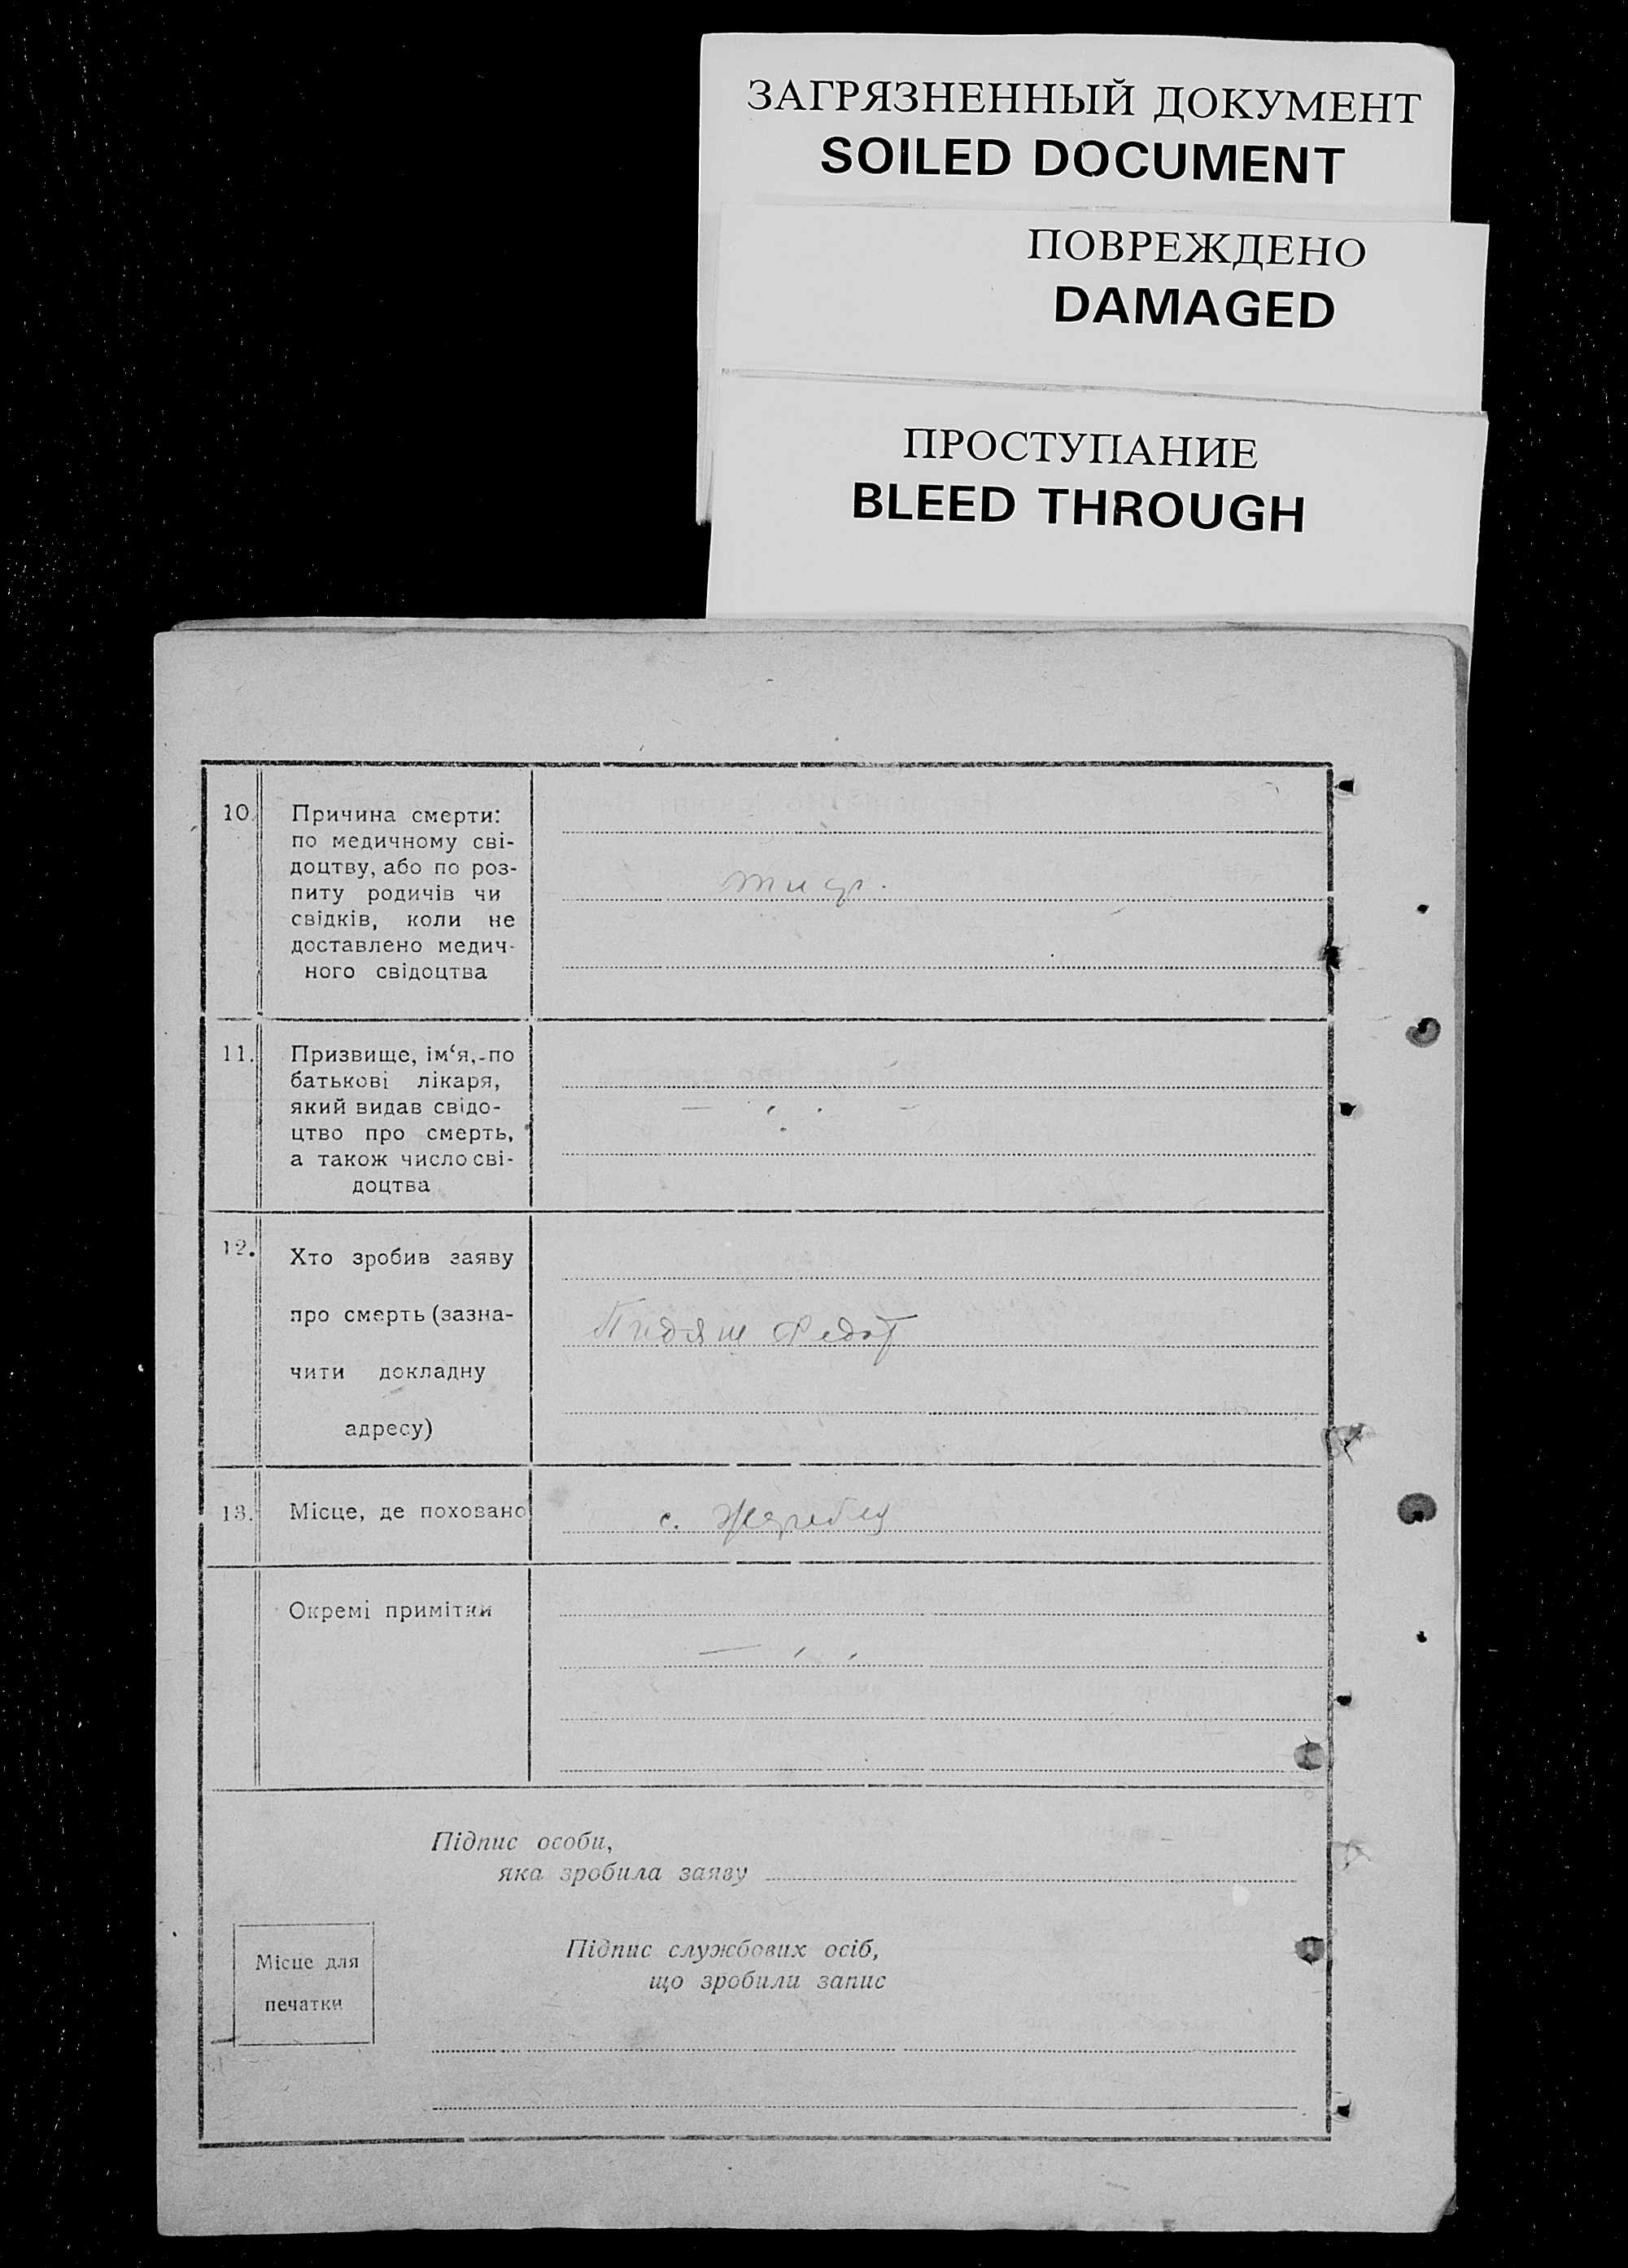 ЗАГРЯЗНЕННЫЙ ДОКУМЕНТ
SOILED DOCUMENT
ПОВРЕЖДЕНО
DAMAGED
ПРОСТУПАНИЕ
BLEED THROUGH
10. Причина смерти:
по медичному сві-
доцтву, або по роз-
питу родичів чи
свідків, коли не
доставлено медич-
ного свідоцтва
тиф.
11. Призвище, ім‘я, по
батькові лікаря,
який видав свідо-
цтво про смерть,
а також число сві-
доцтва
12. Хто зробив заяву
про смерть (зазна-
чити докладну
адресу)
Федот
13. Місце, де поховано
с.
Окремі примітки
Підпис особи,
яка зробила заяву
Місце для
печатки
Підпис службових осіб,
що зробили запис